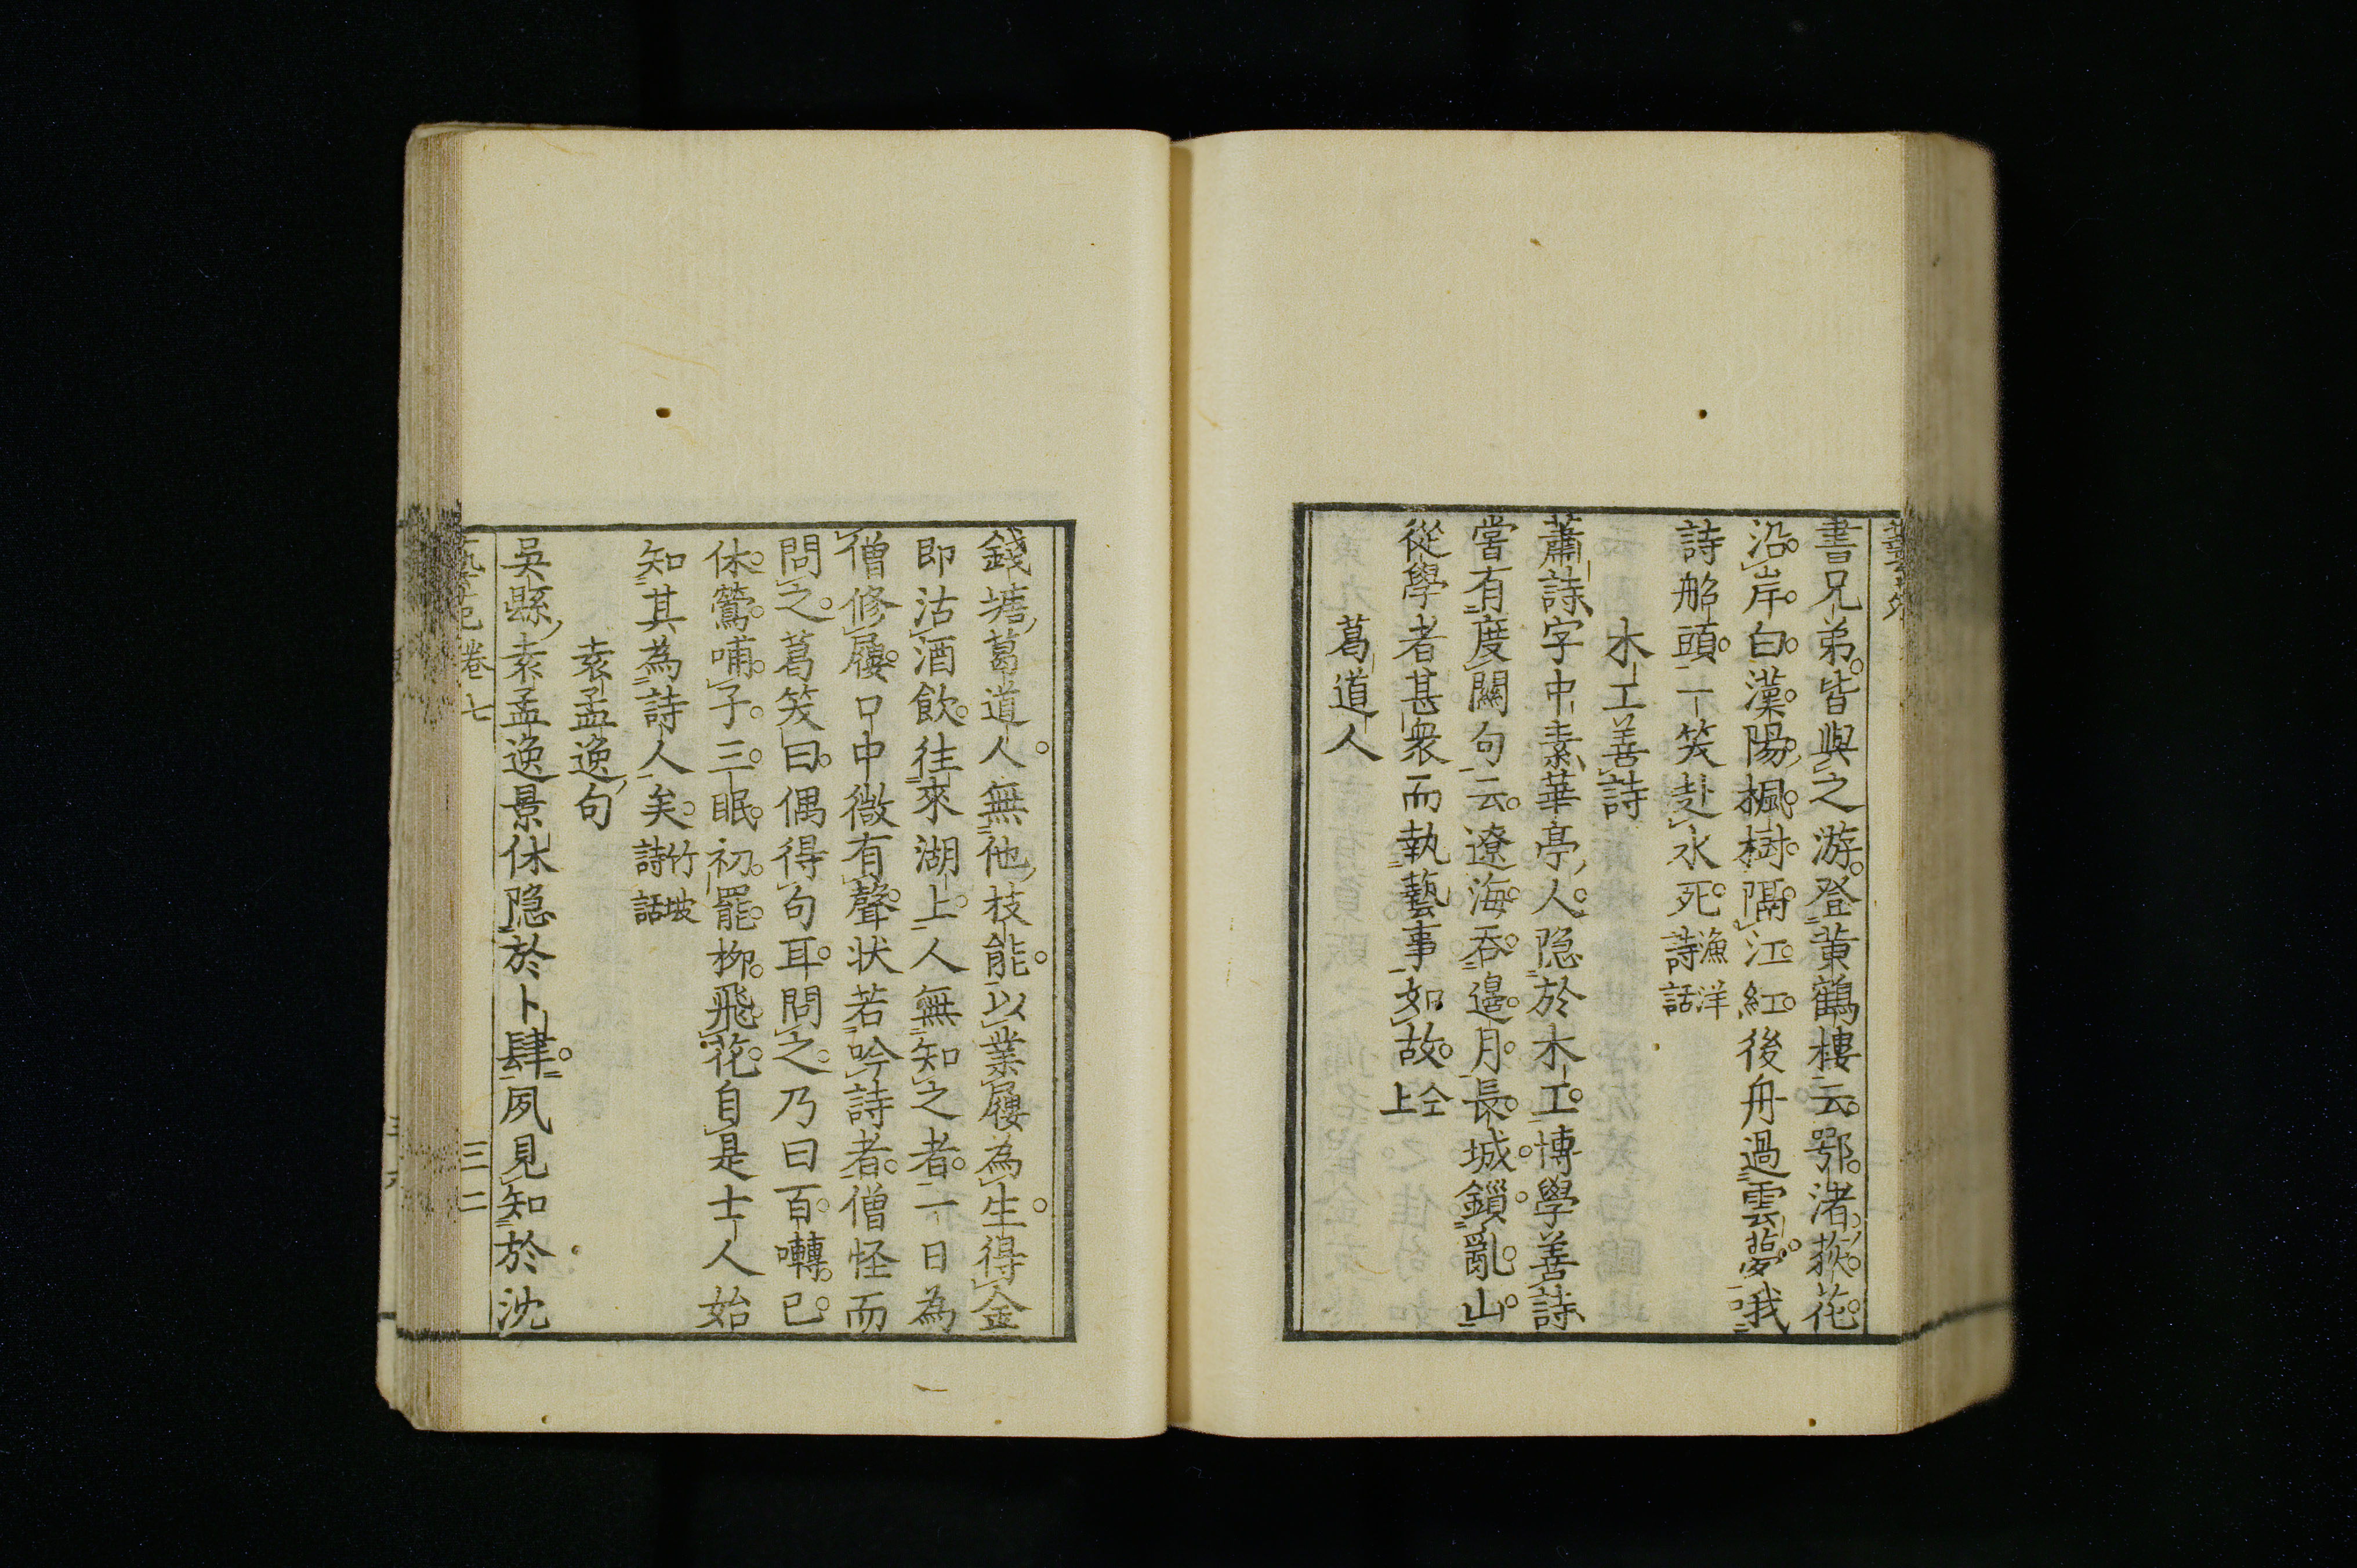 書兄弟皆與之游登黄鶴樓云鄂渚荻花
沿岸白漢陽楓樹隔江紅後舟過雲夢哦
詩船頭一笑赴水死漁洋詩話
木工善詩
蕭詩字中素華亭人隐於木工博學善詩
嘗有度關句云遼海吞邉月長城鎻亂山
從學者甚衆而執藝事如故仝上
葛道人
錢塘葛道人無他枝能以業履為生得金
即沽酒飲往來湖上人無知之者一日為
僧修履口中微有聲状若吟詩者僧怪而
問之葛笑曰偶得句耳問之乃曰百囀已
休鶯哺子三眠初罷栁飛花自是士人始
知其為詩人矣竹坡詩話
袁孟逸句
吳縣袁孟逸景休隐於卜肆夙見知於沈
卷七
三二